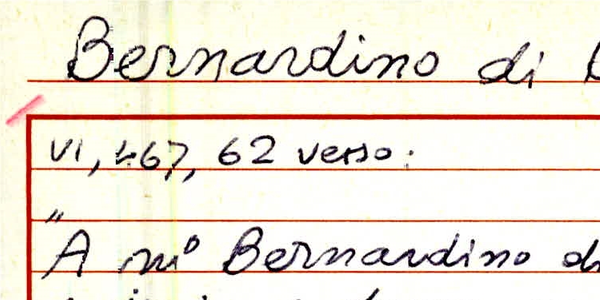 Bernardino di
VI, 467, 62 verso:
"A mº Bernardino di